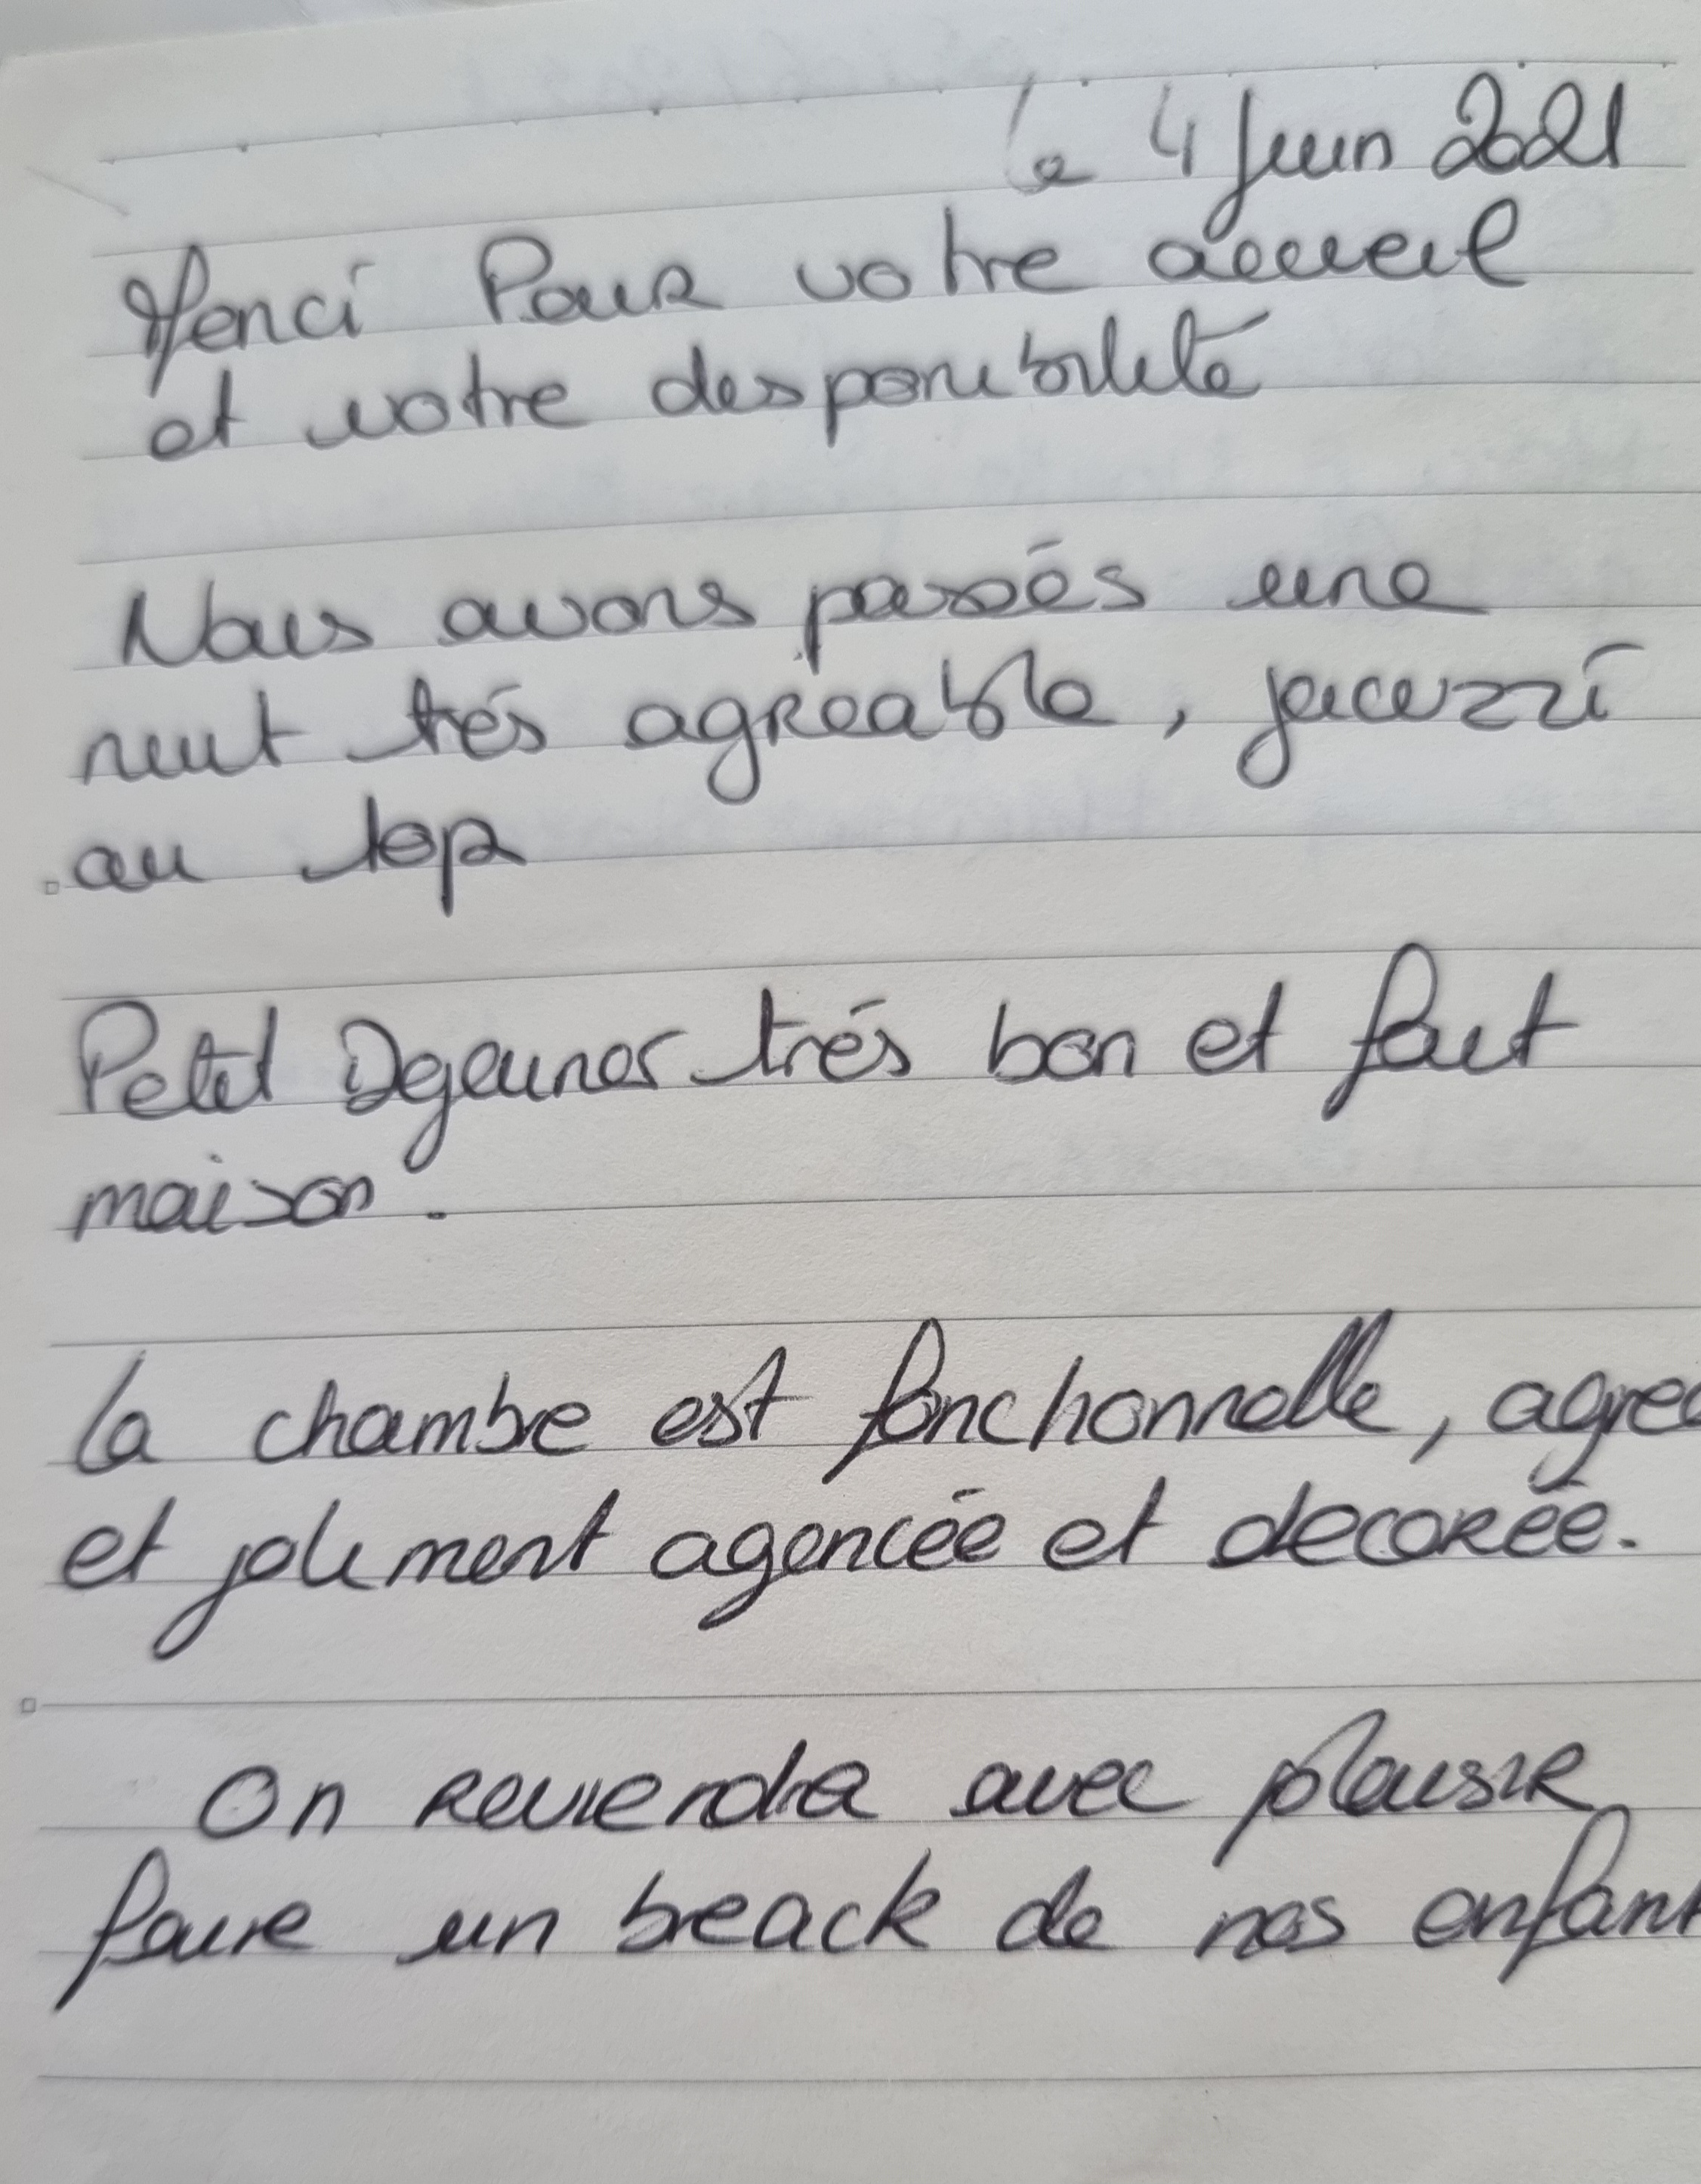 le 4 Juin 2021
Merci Pour votre accueil
et votre disponibilité
Nous avons passés une
nuit trés agréable, jacuzzi
au top
Petit Dejeuner trés bon et fait
maison.
la chambre est fonctionnelle, agréa
et joliment agencée et decorée.
On reviendra avec plaisir
faire un break de nos enfant